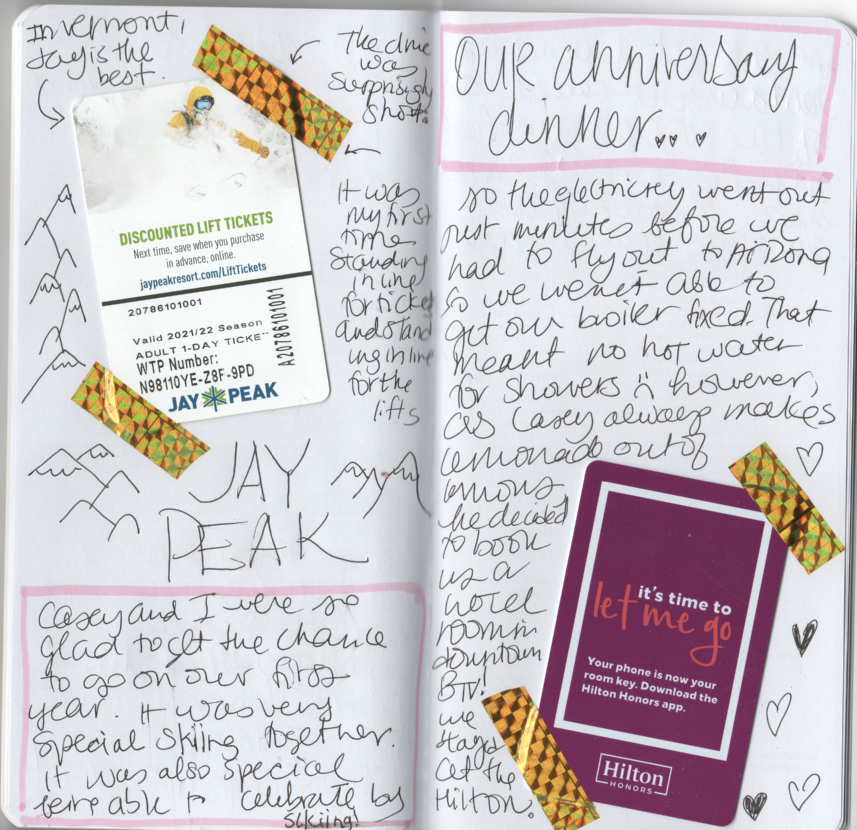 In vermont,
Jay is the
best.
The drive
was
surprisingly
short.
DISCOUNTED LIFT TICKETS
Next time, save when you purchase
in advance, online.
jaypeakresort.com/LiftTickets
20786101001
Valid 2021/22 Season
ADULT 1-DAY TICKE
WTP Number:
N98110YE-Z8F-9PD
A20786101001
JAY PEAK
It was
my first
time
standing
in line
for ticket
and stand
ing in line
for the
lifts
JAY
PEAK
Casey and I were so
glad to get the chance
to go on our
year. It was very
special skiing together.
it was also special
being able to celebrate by
skiing!
OUR anniversary
dinner..
so the electricity went out
just minutes before we
had to fly out to Arizona
so we weren't able to
get our boiler fixed. That
meant no hot water
for showers :( however,
as Casey always makes
lemonade out of
lemons
he decided
to book
us a
hotel
room in
downtown
BTV!
we
stayed
at the
Hilton.
it's time to
let me go
Your phone is now your
room key. Download the
Hilton Honors app.
Hilton
HONORS